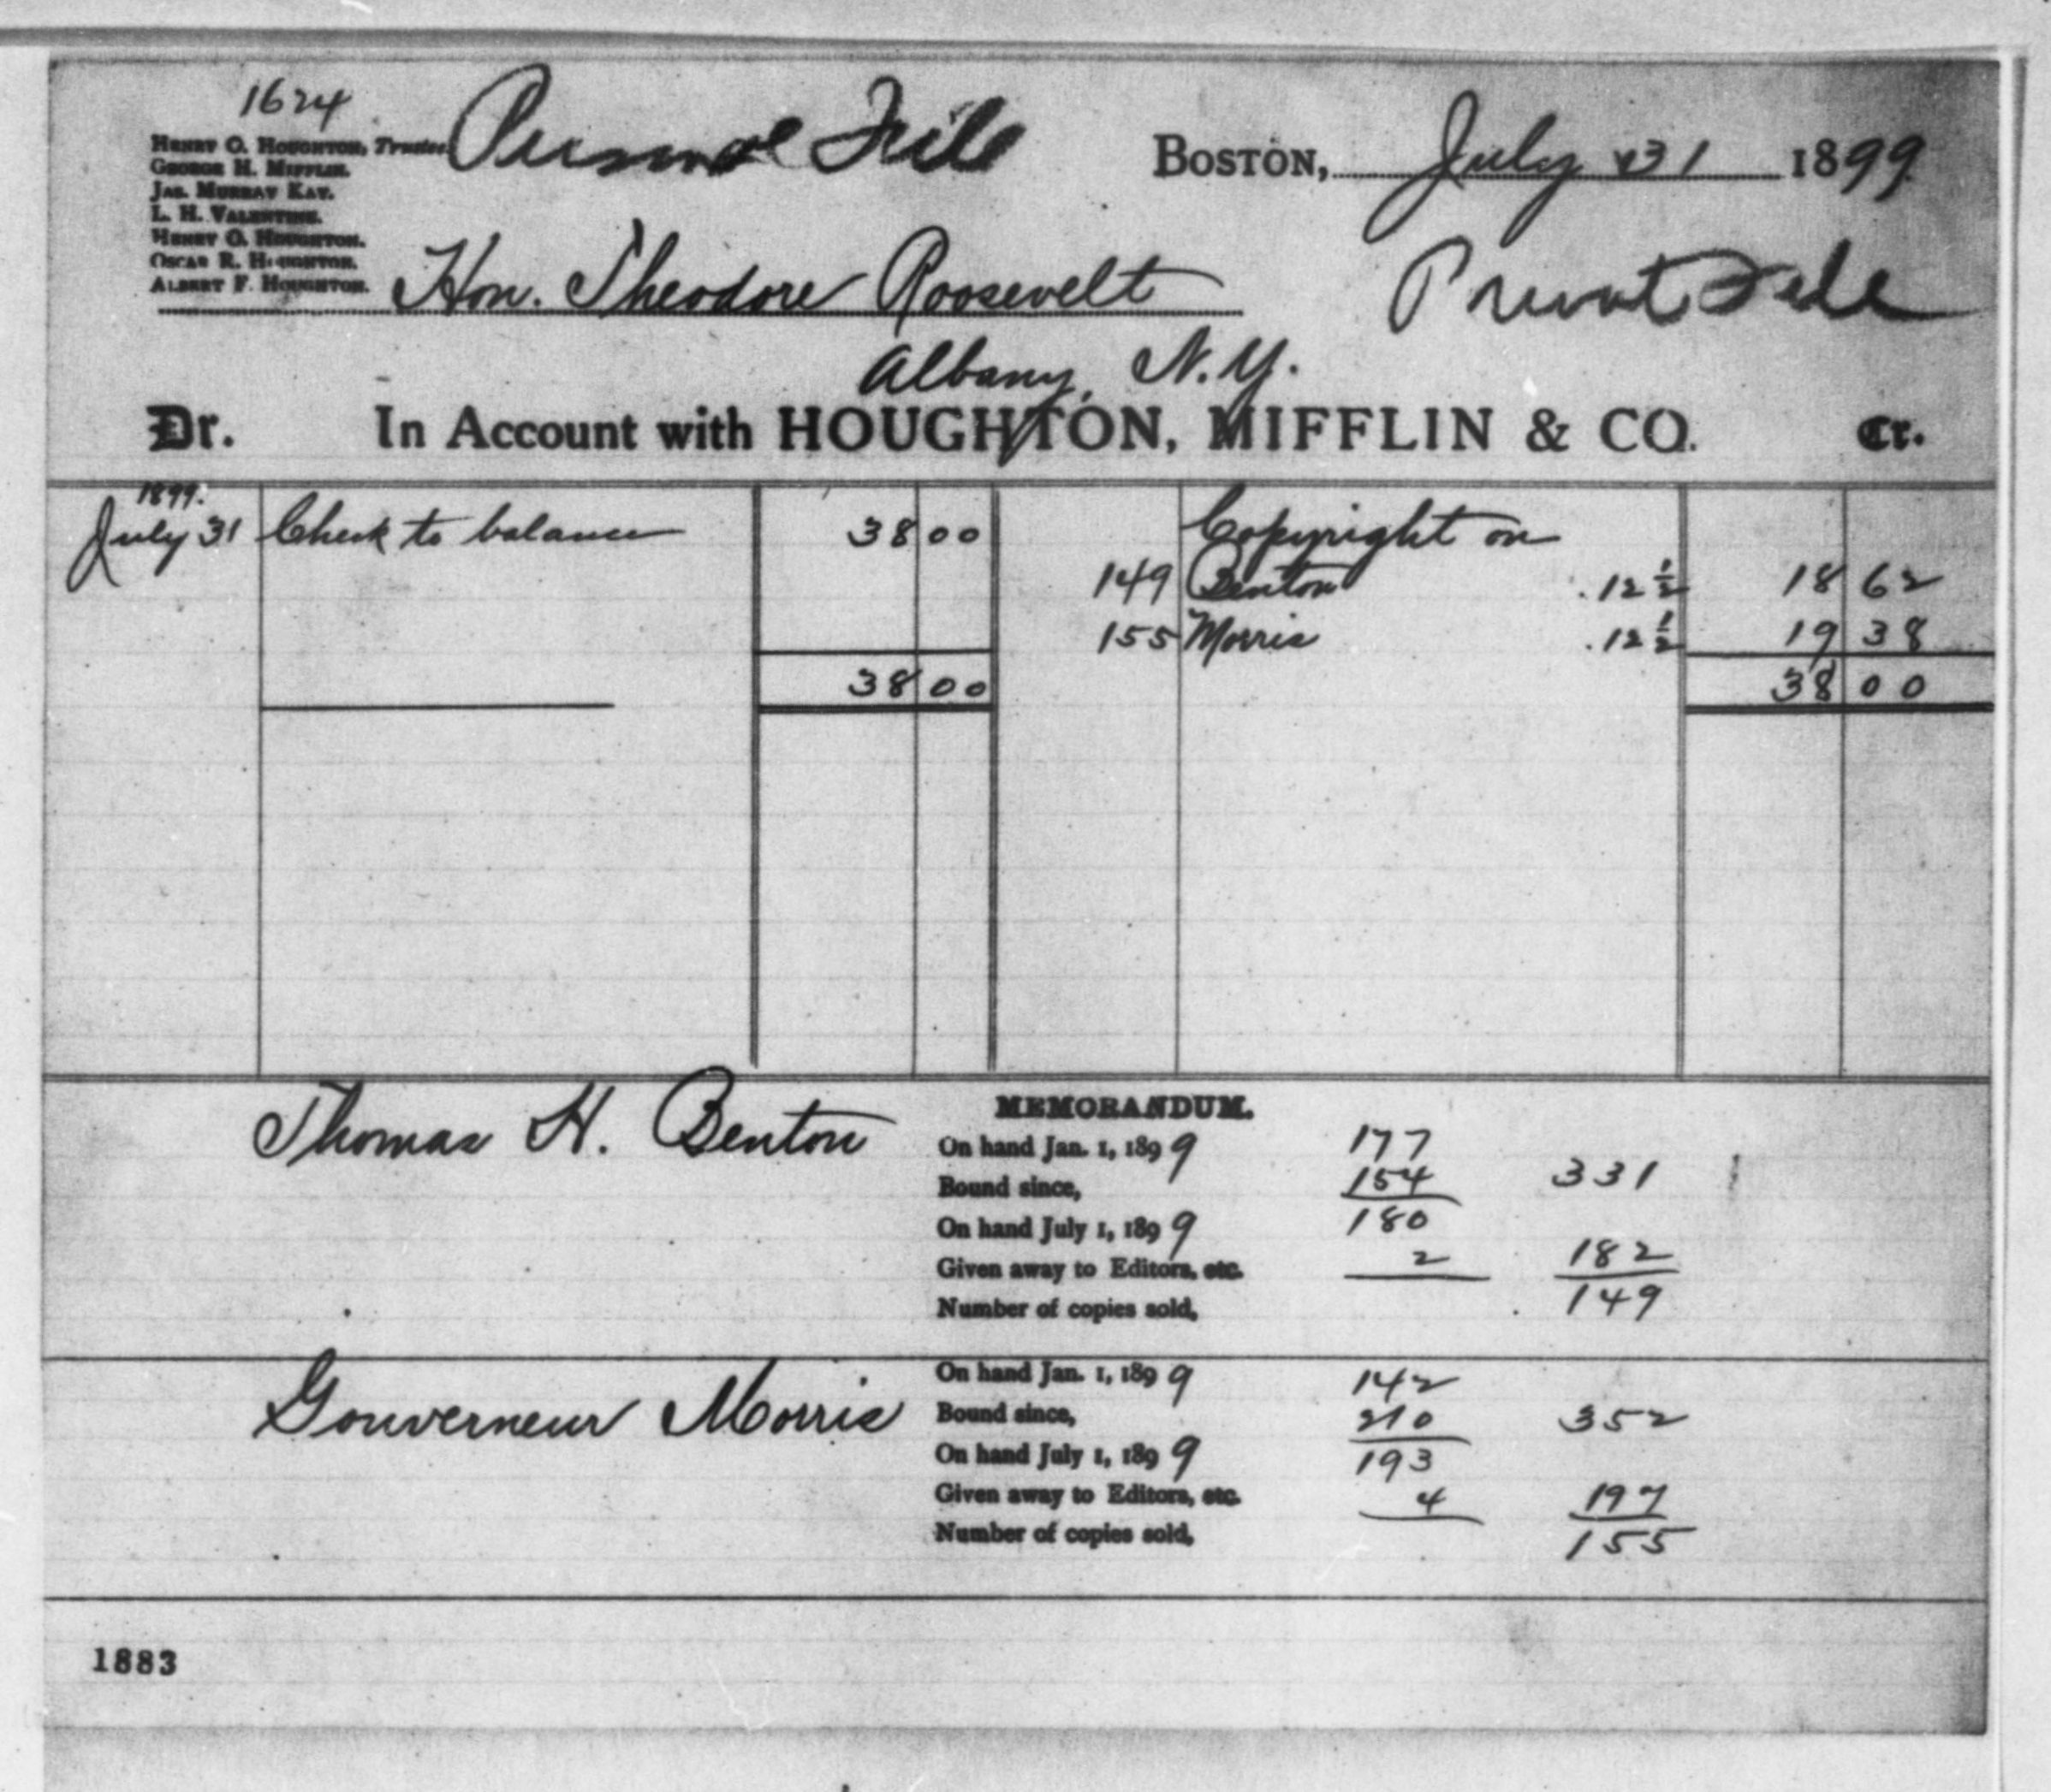 1624
Personal File
Henry O. Houghton, Trustee
George H. Mifflin.
Jas. Murray Kay.
L. H. Valentine.
Henry O. Houghton.
Oscar R. Houghton.
Albert F. Houghton.
Boston, July 31 1899
Hon. Theodore Roosevelt
Private File
Albany, N.Y.
Dr. In Account with HOUGHTON, MIFFLIN & CO. Cr.
1899.
July 31 Check to balance 38 00 Copyright on
149 Benton .12 1/2 18 62
155 Morris .12 1/2 19 38
38 00 38 00
Thomas H. Benton
MEMORANDUM.
On hand Jan. 1, 1899 177
Bound since, 154 331
On hand July 1, 1899 180
Given away to Editors, etc. 2 182
Number of copies sold, 149
Gouverneur Morris
On hand Jan. 1, 1899 142
Bound since, 210 352
On hand July 1, 1899 193
Given away to Editors, etc. 4 197
Number of copies sold, 155
1883